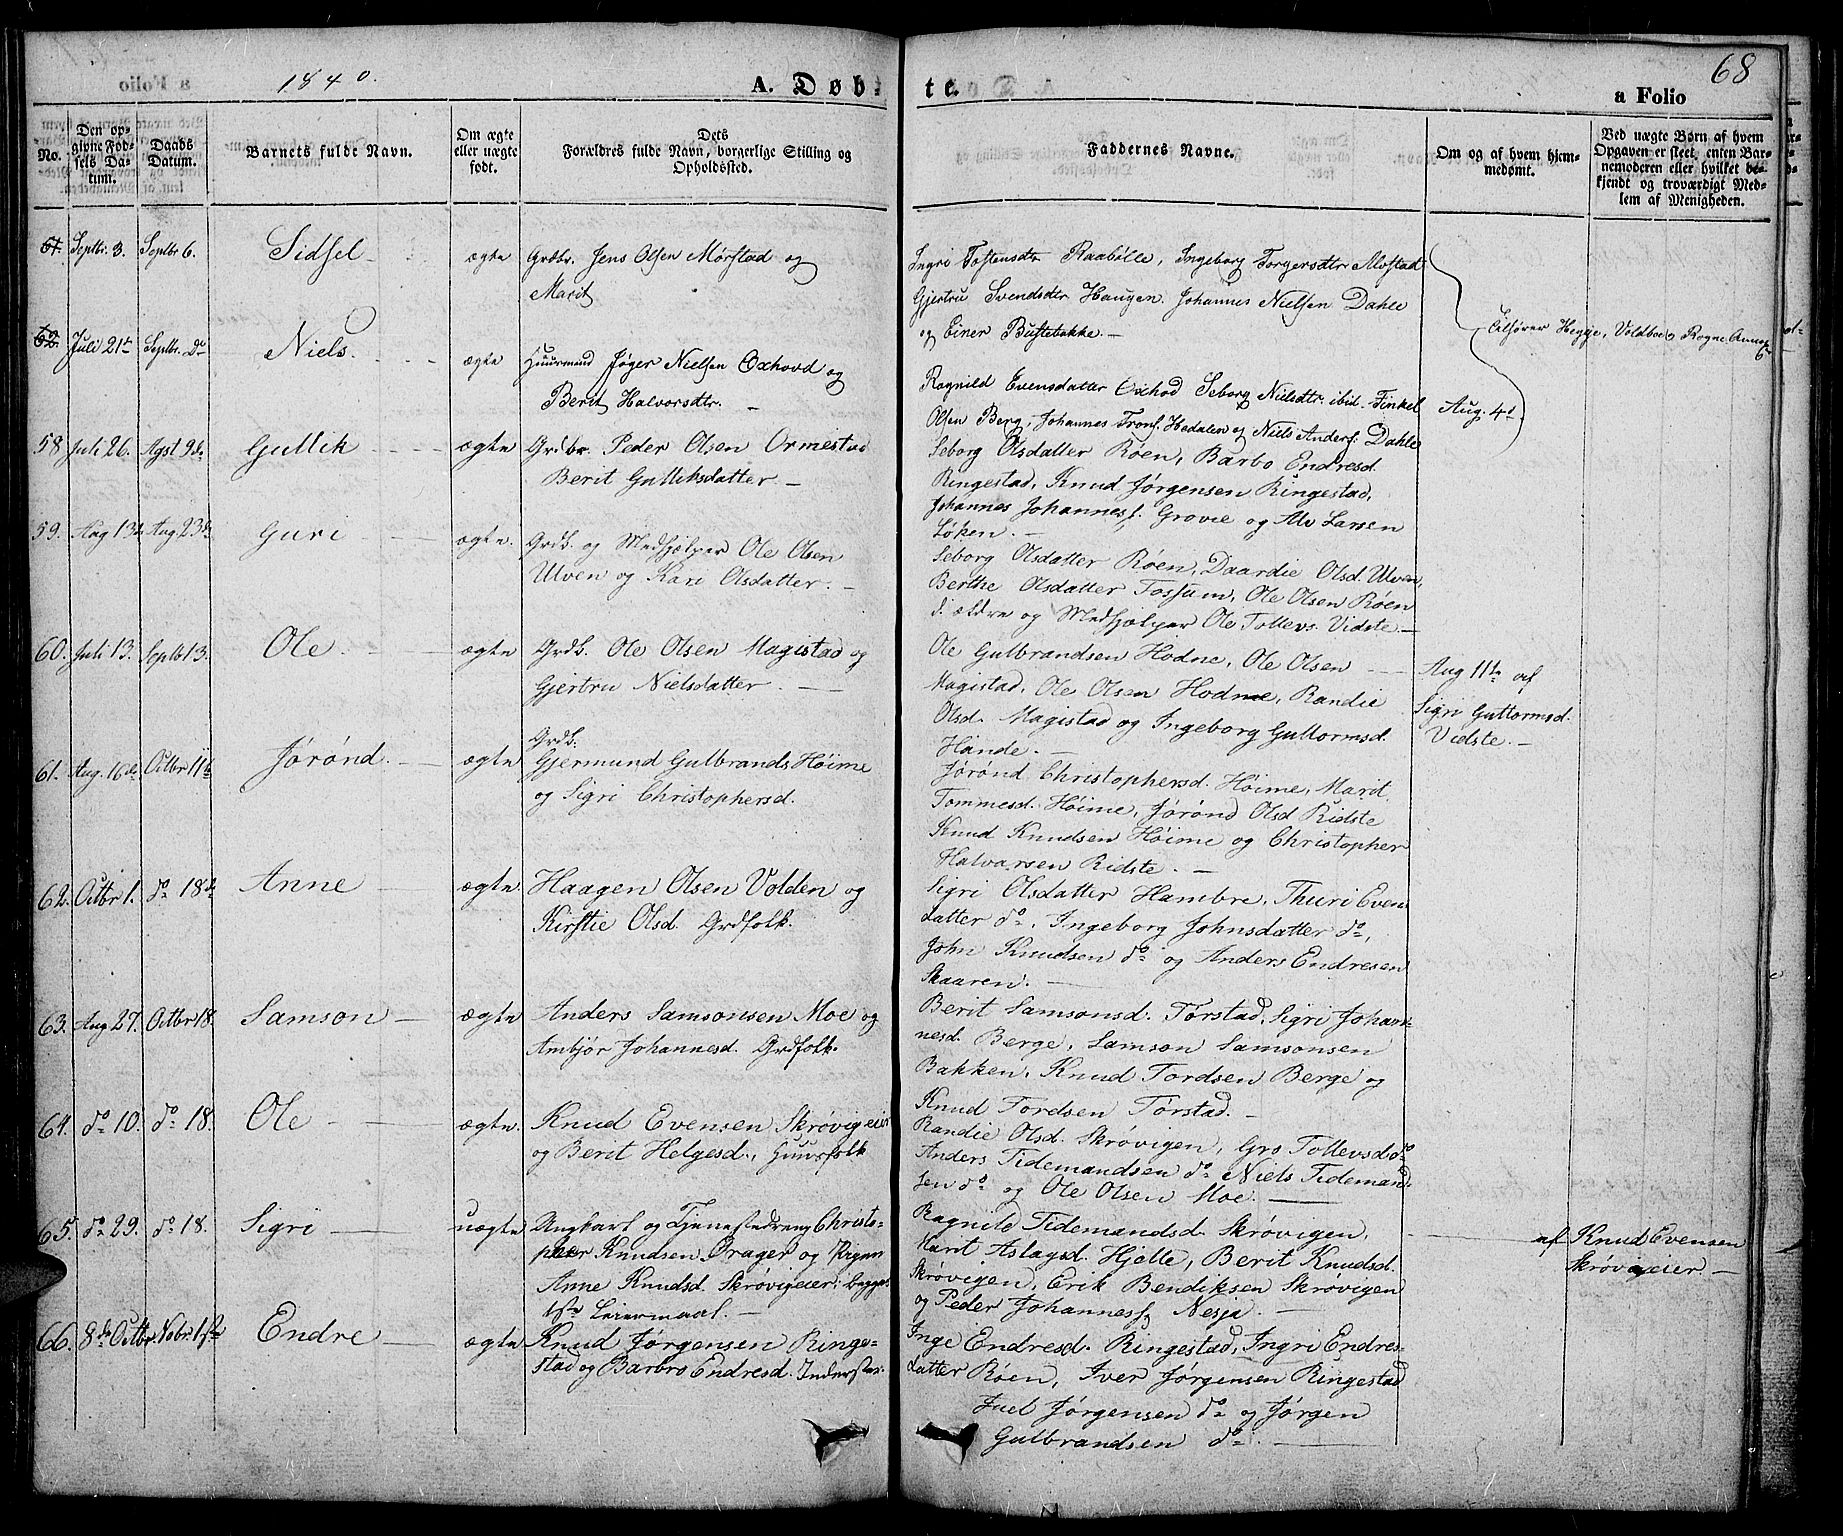 1840.
A. Døb-
te.
68
a Folio
No.
Den op-
givne Fød-
sels Da-
tum.
Daabs
Datum.
Barnets fulde Navn.
Om ægte
eller uægte
født.
Dets
Forældres fulde Navn, borgerlige Stilling og
Opholdssted.
Faddernes Navne.
Om og af hvem hjem-
medøbt.
Ved uægte Børn af hvem
Opgaven er skeet, enten Bar-
nemoderen eller hvilket be-
kjendt og troværdigt Med-
lem af Menigheden.
61. Septbr. 3. Septbr 6. Sidsel ægte Grdbr. Jens Olsen Mørstad og
Marit
Ingri Tostensdtr Raabølle, Ingeborg Torgersdtr
Gjertru Svendsdtr Haugen. Johannes Nielsen Dahle
og Einer
Tilhører Hegge, Voldboe, Rogne Annex
62 Juli 21t Septbr. do Niels ægte Huusmand Jøger Nielsen Oxhovd og
Berit Halvorsdtr.
Ragnild Evensdatter Oxhod Seborg Nielsdtr. ibid. Finkel
Olsen Berg, Johannes Trons. Hedalen og Niels Anders. Dahle
Aug. 4d
58 Juli 26. Agst 9de Gullik ægte Grdbr. Peder Olsen Ormestad
Berit Gulliksdatter.
Seborg Olsdatter Røen, Barbo Endresd.
Ringestad, Knud Jørgensen Ringestad,
Johannes Johanness. Grovie og Alv Larsen
Løken.
59. Aug 13d Aug 23de Guri ægte. Grdb. og Medhjælper Ole Olsen
Ulven og Kari Olsdatter.
Seborg Olsdatter Røen, Daardie Olsd. Ulven,
Berthe Olsdatter Fossum, Ole Olsen Røen
d. ældre og Medhjælper Ole Tollevs. Vidste.
60. Juli 13. Septb 13. Ole. ægte Grdb. Ole Olsen Magistad og
Gjertru Nielsdatter.
Ole Gulbrandsen Hodne, Ole Olsen
Magistad, Ole Olsen Hodne, Randie
Olsd. Magistad og Ingeborg Guttormsd.
Hande.
Aug 11te af
Sigri Guttormsd.
Vidste.
61. Aug. 16de Octbr 11te Jørønd. ægte Grdb.
Gjermund Gulbrands Høime
og Sigri Christophersd.
Jørønd Christophersd. Høime, Marit
Tommesd. Høime, Jørønd Olsd Ridste
Knud Knudsen Høime og Christopher
Halvarsen Ridste.
62. Octbr 1. do 18de Anne ægte. Haagen Olsen Volden og
Kirstie Olsd. Grdfolk.
Sigri Olsdatter Hambre, Thuri Even-
datter do, Ingeborg Johnsdatter do,
John Knudsen do og Anders Endresen
Skaaren.
63. Aug 27. Octbr 18. Samson ægte Anders Samsonsen Moe og
Ambjør Johannesd. Grdfolk.
Berit Samsonsd. Torstad, Sigri Johan-
nesd. Berge, Samson Samsonsen
Bakken, Knud Tordsen Berge og
Knud Tordsen Torstad.
64. do 10. do 18. Ole ægte. Knud Evensen Skrøvigeier
og Berit Helgesd., Huusfolk
Randie Olsd. Skrøvigen, Gro Tollevsd do
Anders Tidemandsen do Niels Tidemand-
sen do og Ole Olsen Moe.
65. do 29. do 18. Sigri uægte Ungkarl og Tjenestedreng Christo-
pher Knudsen Drager og Pigen
Anne Knudsd. Skrøvigeier; begges
1ste Leiermaal.
Ragnild Tidemandsd. Skrøvigen,
Marit Aslagsd. Hjelle, Berit Knudsd.
Skrøvigen, Erik Bendiksen Skrøvigen
og Peder Johanness. Nesja.
af Knud Evensen
Skrøvigeier.
66. 8de Octbr. Nobr. 1ste Endre ægte Knud Jørgensen Ringe-
stad og Barbro Endresd. Inderster.
Inge Endresd. Ringestad, Ingri Endres-
datter Røen, Iver Jørgensen Ringestad
Juel Jørgensen do og Jørgen
Gulbrandsen do.